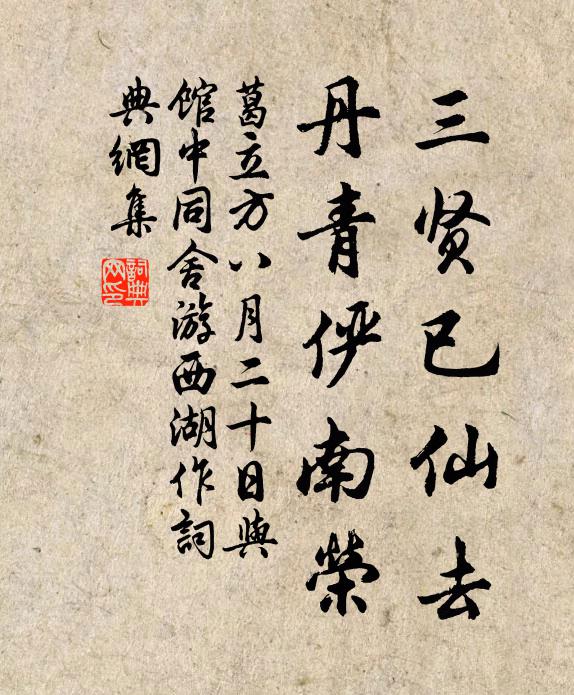 三贤已仙去
丹青俨南榮
葛立方八月二十日與
館中同舍游西湖作詞
典網集
詞典網印